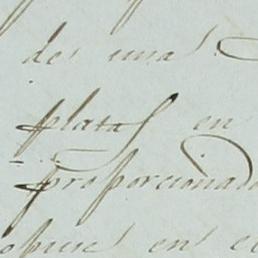 de una
plata en
proporcionado
en